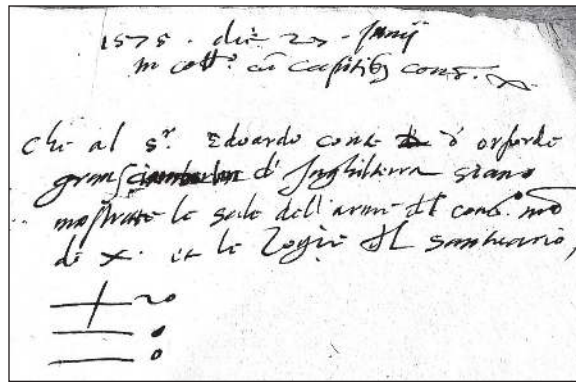 1575 . die 27 . Junij
in coll.º cũ capitibus cons. X
che al s.r Edoardo conte d'orforde
gran sciamberlan d'Inghilterra siano
mostrate le sale dell'arme del cons.º nrõ
di X. et le Zogie del santuario,
20
0
0